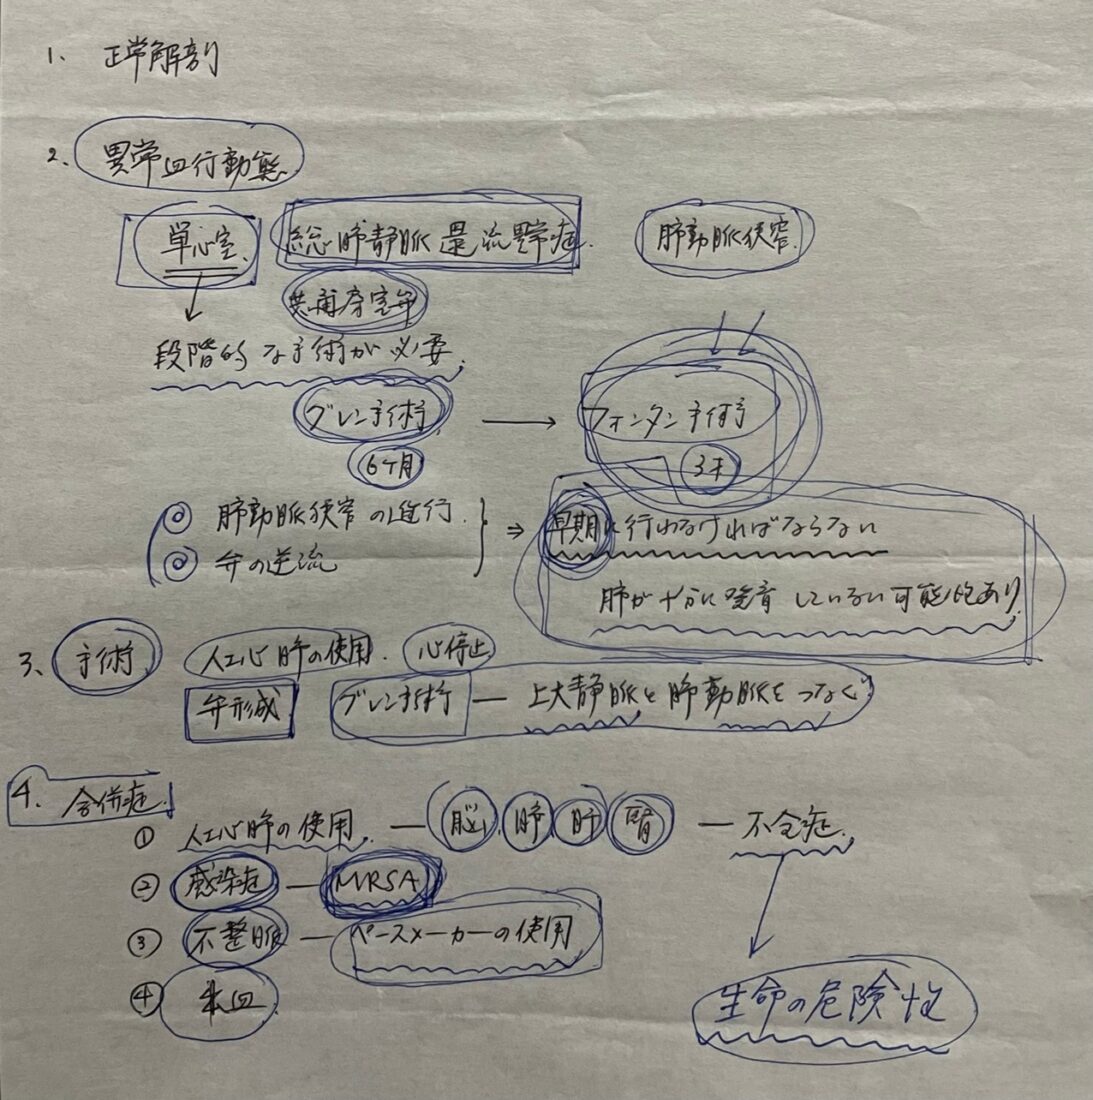 1. 正常解剖
2. 異常血行動態
単心室. 総肺静脈還流異常症. 肺動脈狭窄.
共通房室弁
段階的な手術が必要.
グレン手術 → フォンタン手術
6ヶ月 3才
◎ 肺動脈狭窄の進行.
◎ 弁の逆流
⇒ 早期に行わなければならない
肺が十分に発育していない可能性あり.
3. 手術. 人工心肺の使用. 心停止
弁形成 グレン手術 — 上大静脈と肺動脈をつなぐ
4. 合併症.
① 人工心肺の使用. — 脳. 肺 肝 腎 — 不全症.
② 感染症 — MRSA
③ 不整脈 — ペースメーカーの使用
④ 出血.
生命の危険性